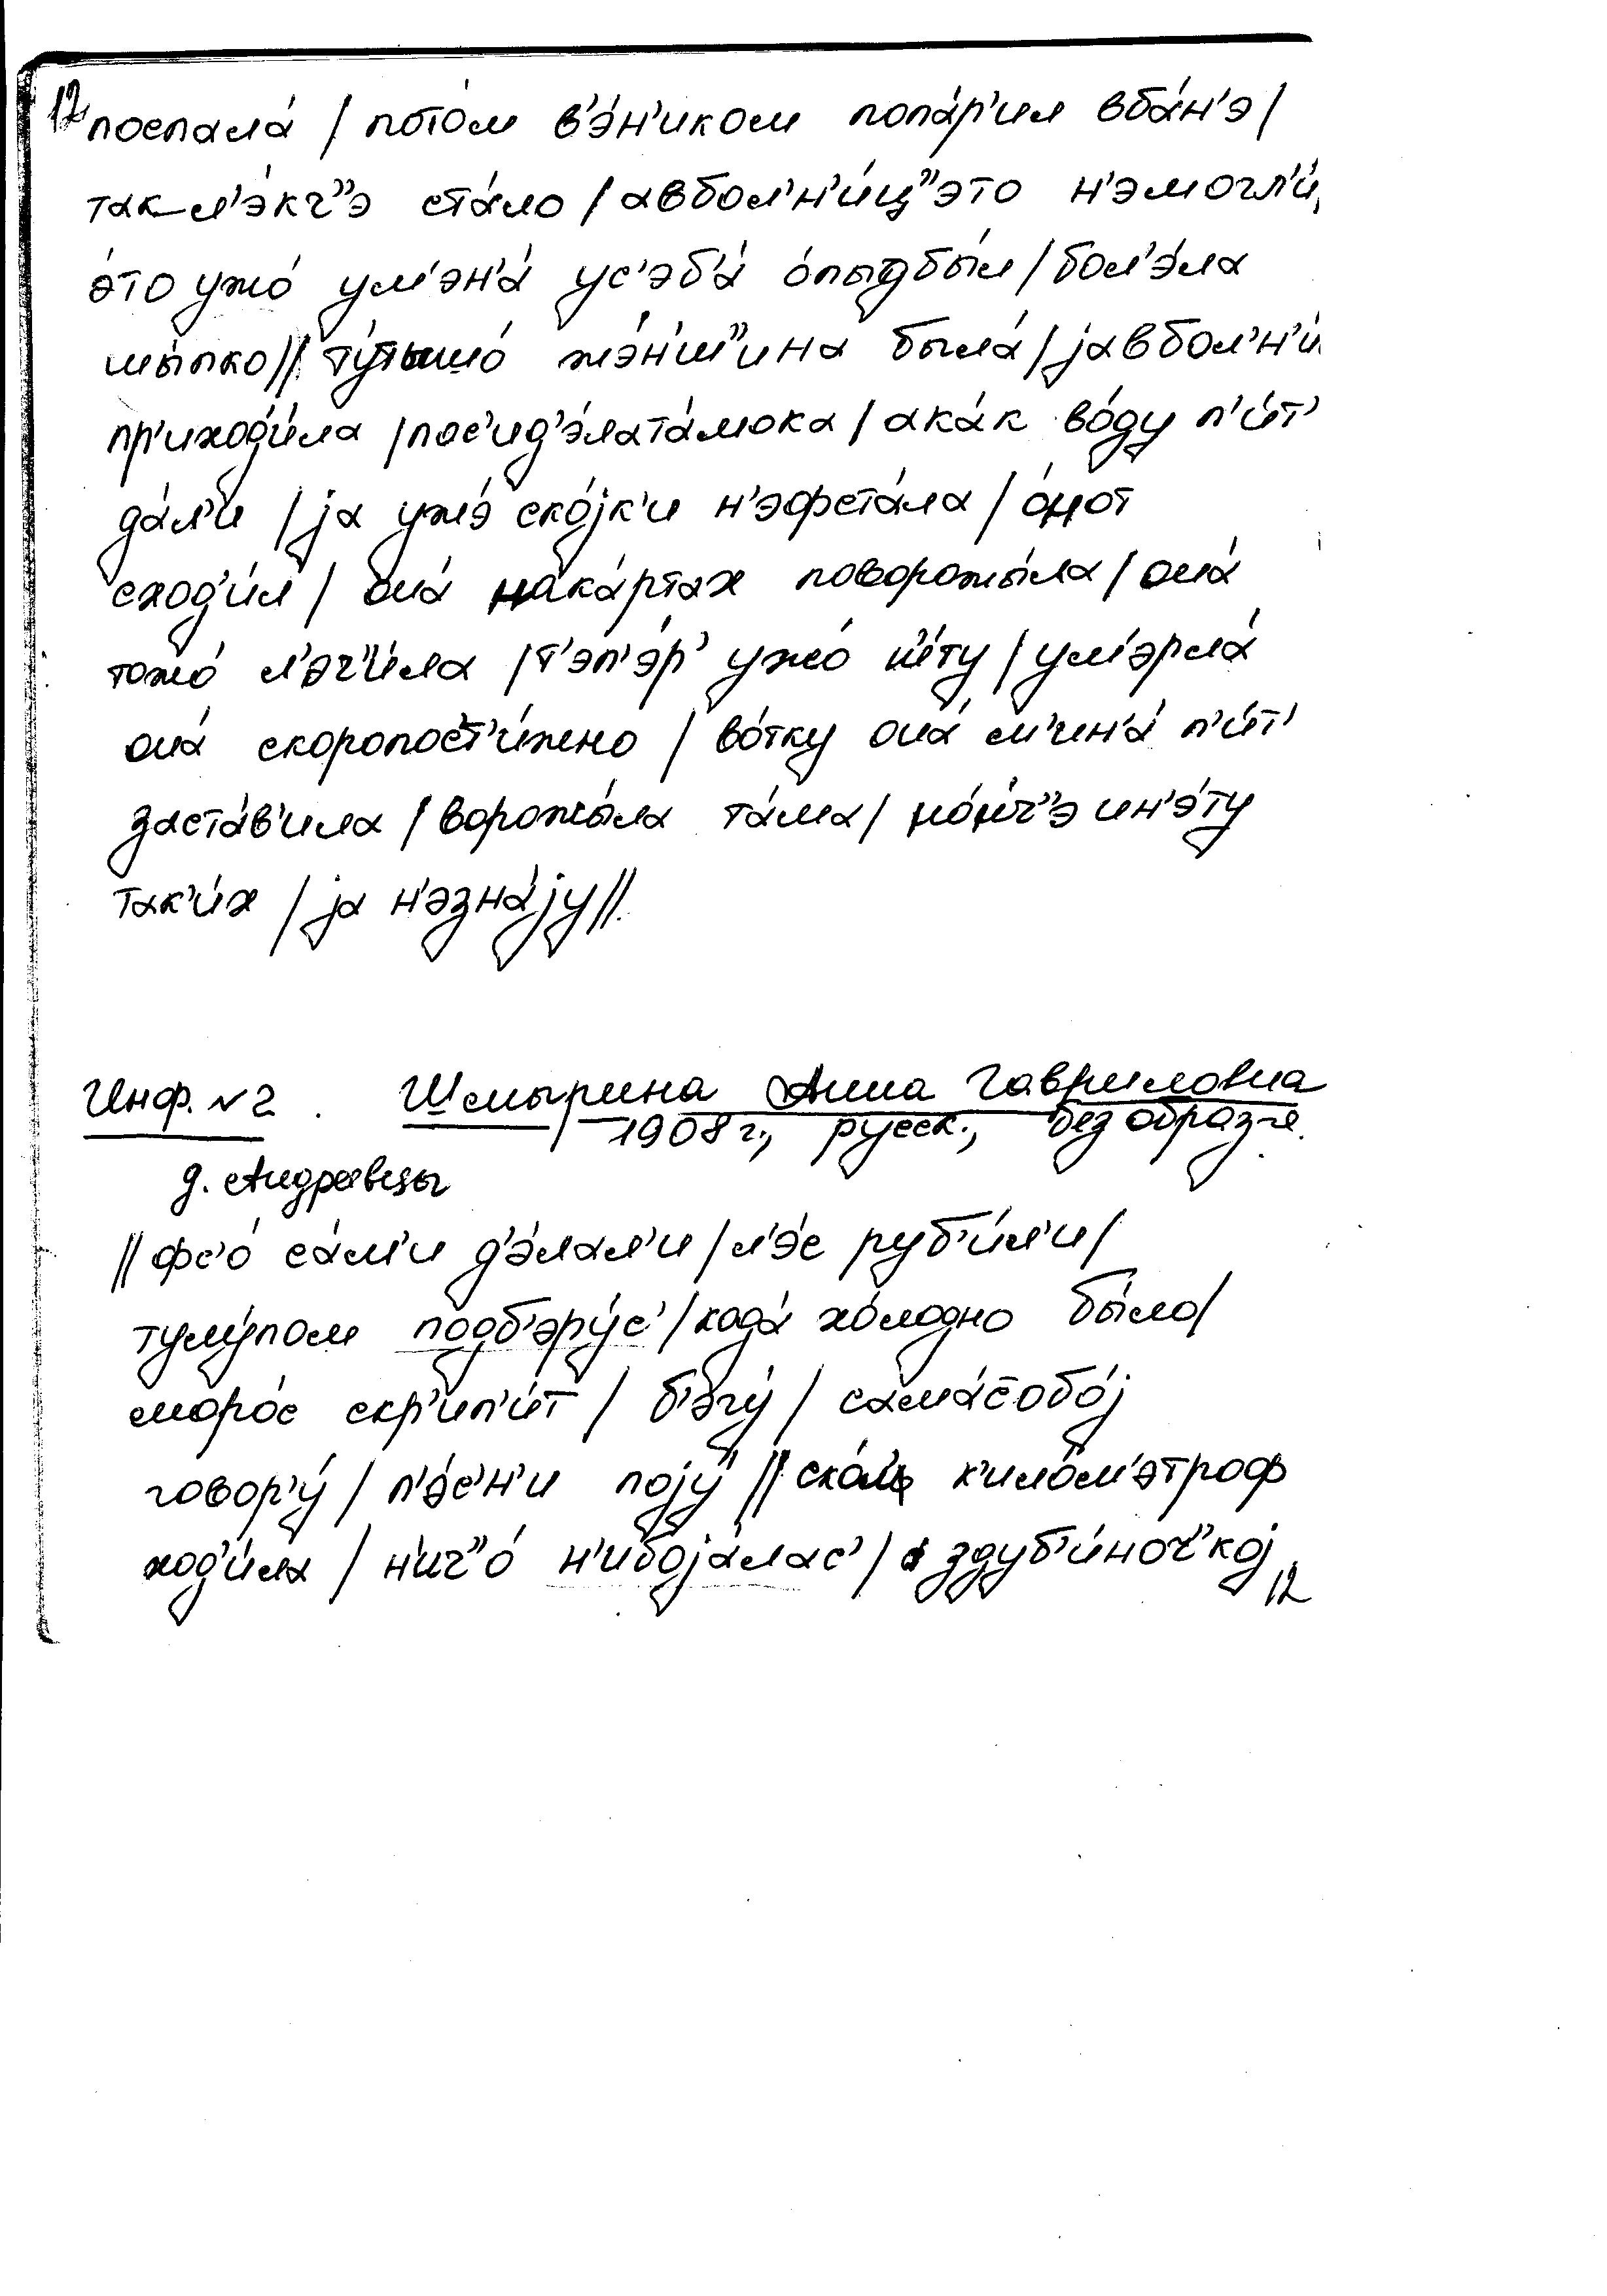 12 поспала́ / пото́м в'э́н'иком попа́р'ил вба́н'э /
так л'э́кч"э ста́ло / авбол'н'и́ц"это н'эмогл'и́
э́то ужо́ ум'эн'а́ ус'эб'а́ о́пыдбы́л / бол'э́ла
шы́пко // ту́тышо́ жэ́н'ш"ина была́ / jавбол'н'и́
пр'иход'и́ла / пос'ид'э́лата́мока / ака́к во́ду п'и́т'
да́л'и / jа ужэ́ ско́jк'и н'эфста́ла / о́нот
сход'и́л / она́ нака́ртах поворожы́ла / она́
тожо́ л'эч"и́ла / т'эп'э́р' ужо́ н'е́ту / ум'эрла́
она́ скоропост'и́жно / во́тку она́ м'ин'а́ п'и́т'
заста́в'ила / ворожы́ла та́ма / но́н'ч"э ин'э́ту
так'и́х / jа н'эзна́jу //
Инф. №2. Шмырина Анна Гавриловна
1908 г., русск., без образ-я.
д. Андреевцы
// фс'о́ са́м'и д'э́лал'и / л'э́с руб'и́л'и /
тулу́пом подб'эру́с' / када́ хо́лодно бы́ло /
моро́с скр'ип'и́т / б'эгу́ / сама́с̄обо́j
говор'у́ / п'э́с'н'и поjу́ // ско́л' к'ило́м'этроф
ход'и́ла / н'ич"о́ н'ибоjа́лас' / здуб'и́ноч"коj 12